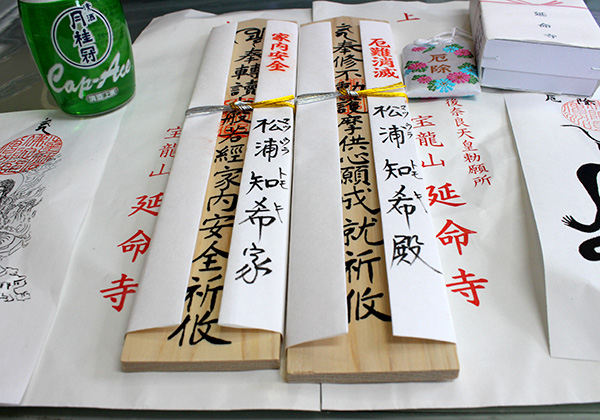 月桂冠
Cap-Ace
宝龍山 延命寺
家内安全
奉轉讀大般若經家内安全祈攸
松浦知希家
マツウラ トモキ
厄難消滅
奉修不動護摩供心願成就祈攸
松浦知希殿
マツウラ トモキ
上
厄除
延命寺
後奈良天皇勅願所
宝龍山 延命寺
厄除